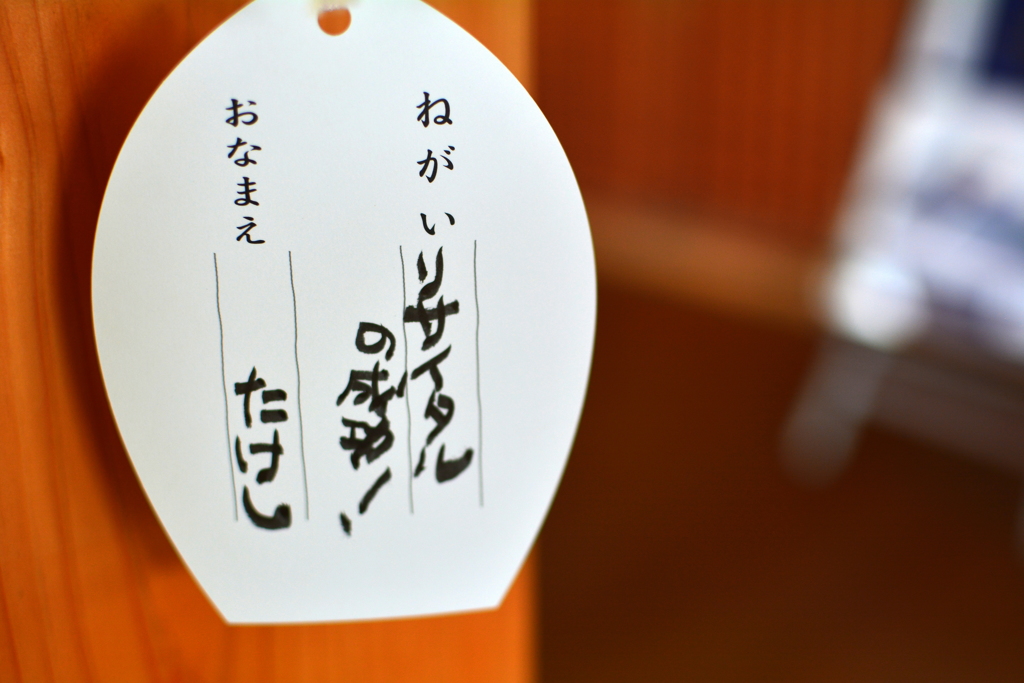 ねがい
リサイタル
の成功!
おなまえ
たけし